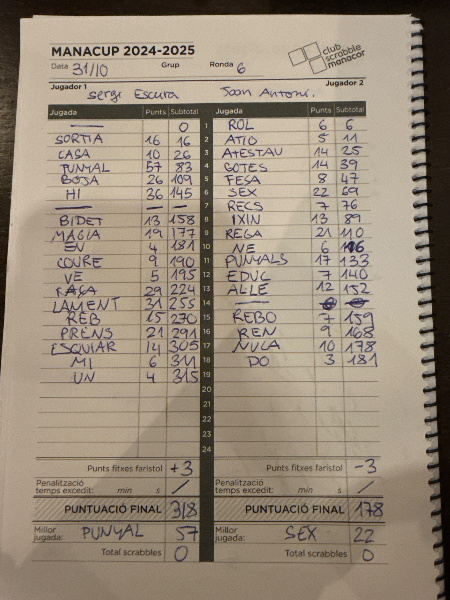 MANACUP 2024-2025
club scrabble manacor
Data 31/10 Grup Ronda 6
Jugador 1 Jugador 2
Sergi Escura Joan Antoni.
Jugada Punts Subtotal Jugada Punts Subtotal
— 0 1 ROL 6 6
SORTIA 16 16 2 ATIO 5 11
CASA 10 26 3 ATESTAU 14 25
PUNYAL 57 83 4 GOTES 14 39
BOJA 26 109 5 FESA 8 47
HI 36 145 6 SEX 22 69
— — 7 RECS 7 76
BIDET 13 158 8 IXIN 13 89
MAGIA 19 177 9 REGA 21 110
EN 4 181 10 NE 6 116
COURE 9 190 11 PUNYALS 17 133
VE 5 195 12 EDUC 7 140
FAÇA 29 224 13 ALLE 12 152
LAMENT 31 255 14 —
REB 15 270 15 REBO 7 159
PRENS 21 291 16 REN 9 168
ESQUIAR 14 305 17 NULA 10 178
MI 6 311 18 DO 3 181
UN 4 315 19
20
21
22
23
24
Punts fitxes faristol +3 Punts fitxes faristol -3
Penalització temps excedit: min s / Penalització temps excedit: min s /
PUNTUACIÓ FINAL 318 PUNTUACIÓ FINAL 178
Millor jugada: PUNYAL 57 Millor jugada: SEX 22
Total scrabbles 0 Total scrabbles 0